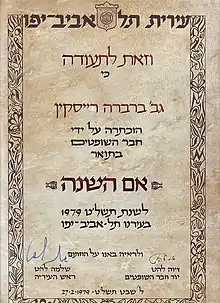 עירית תל־אביב־יפו
וזאת לתעודה
כי
גב' ברברה רייסקין
הוכתרה על ידי
חבר השופטים
בתואר
אם השנה
לשנת תשל"ט 1979
בעירנו תל־אביב־יפו
ולראיה באנו על החתום
דיוה להט
יור חבר השופטים
שלמה להט
ראש העיריה
ל' שבט תשל"ט־27.2.1979